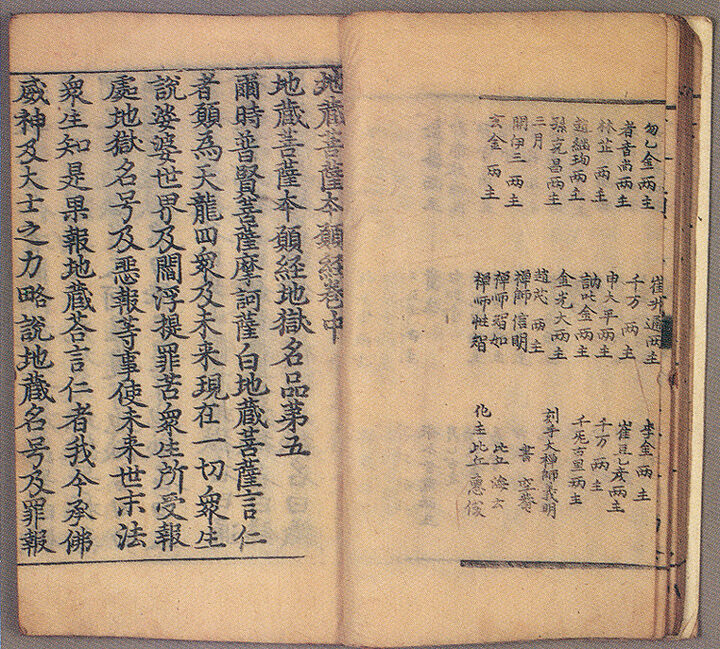 匆乙金兩主
者音尚兩主
林芷兩主
趙継珣兩主
孫克昌兩主
三月
開伊三兩主
玄金兩主
崔 通兩主
千万兩主
申大平兩主
訥叱金兩主
金光大兩主
趙 兩主
禅師信明
禅師智如
禅師性智
李金兩主
崔豆乙彦兩主
千万兩主
千死古里兩主
刻手大禅師義明
書空菴
比丘海云
化主比丘惠俊
地蔵菩薩夲願経卷中
地蔵菩薩夲願経地獄名品第五
爾時普賢菩薩摩訶薩白地蔵菩薩言仁
者願為天龍四衆及未来現在一切衆生
說婆婆世界及閻浮提罪苦衆生所受報
處地獄名号及恶報等事使未来世末法
衆生知是果報地蔵荅言仁者我今承佛
威神及大士之力略說地蔵名号及罪報